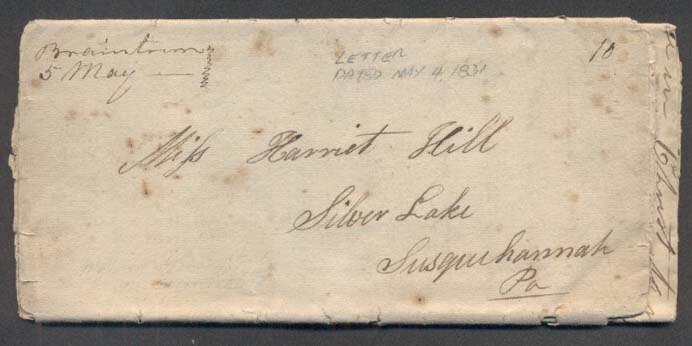 Braintrem
5 May
LETTER
DATED MAY 4, 1831
10
Miſs Harriet Hill
Silver Lake
Susquehannah
Pa
in Christ